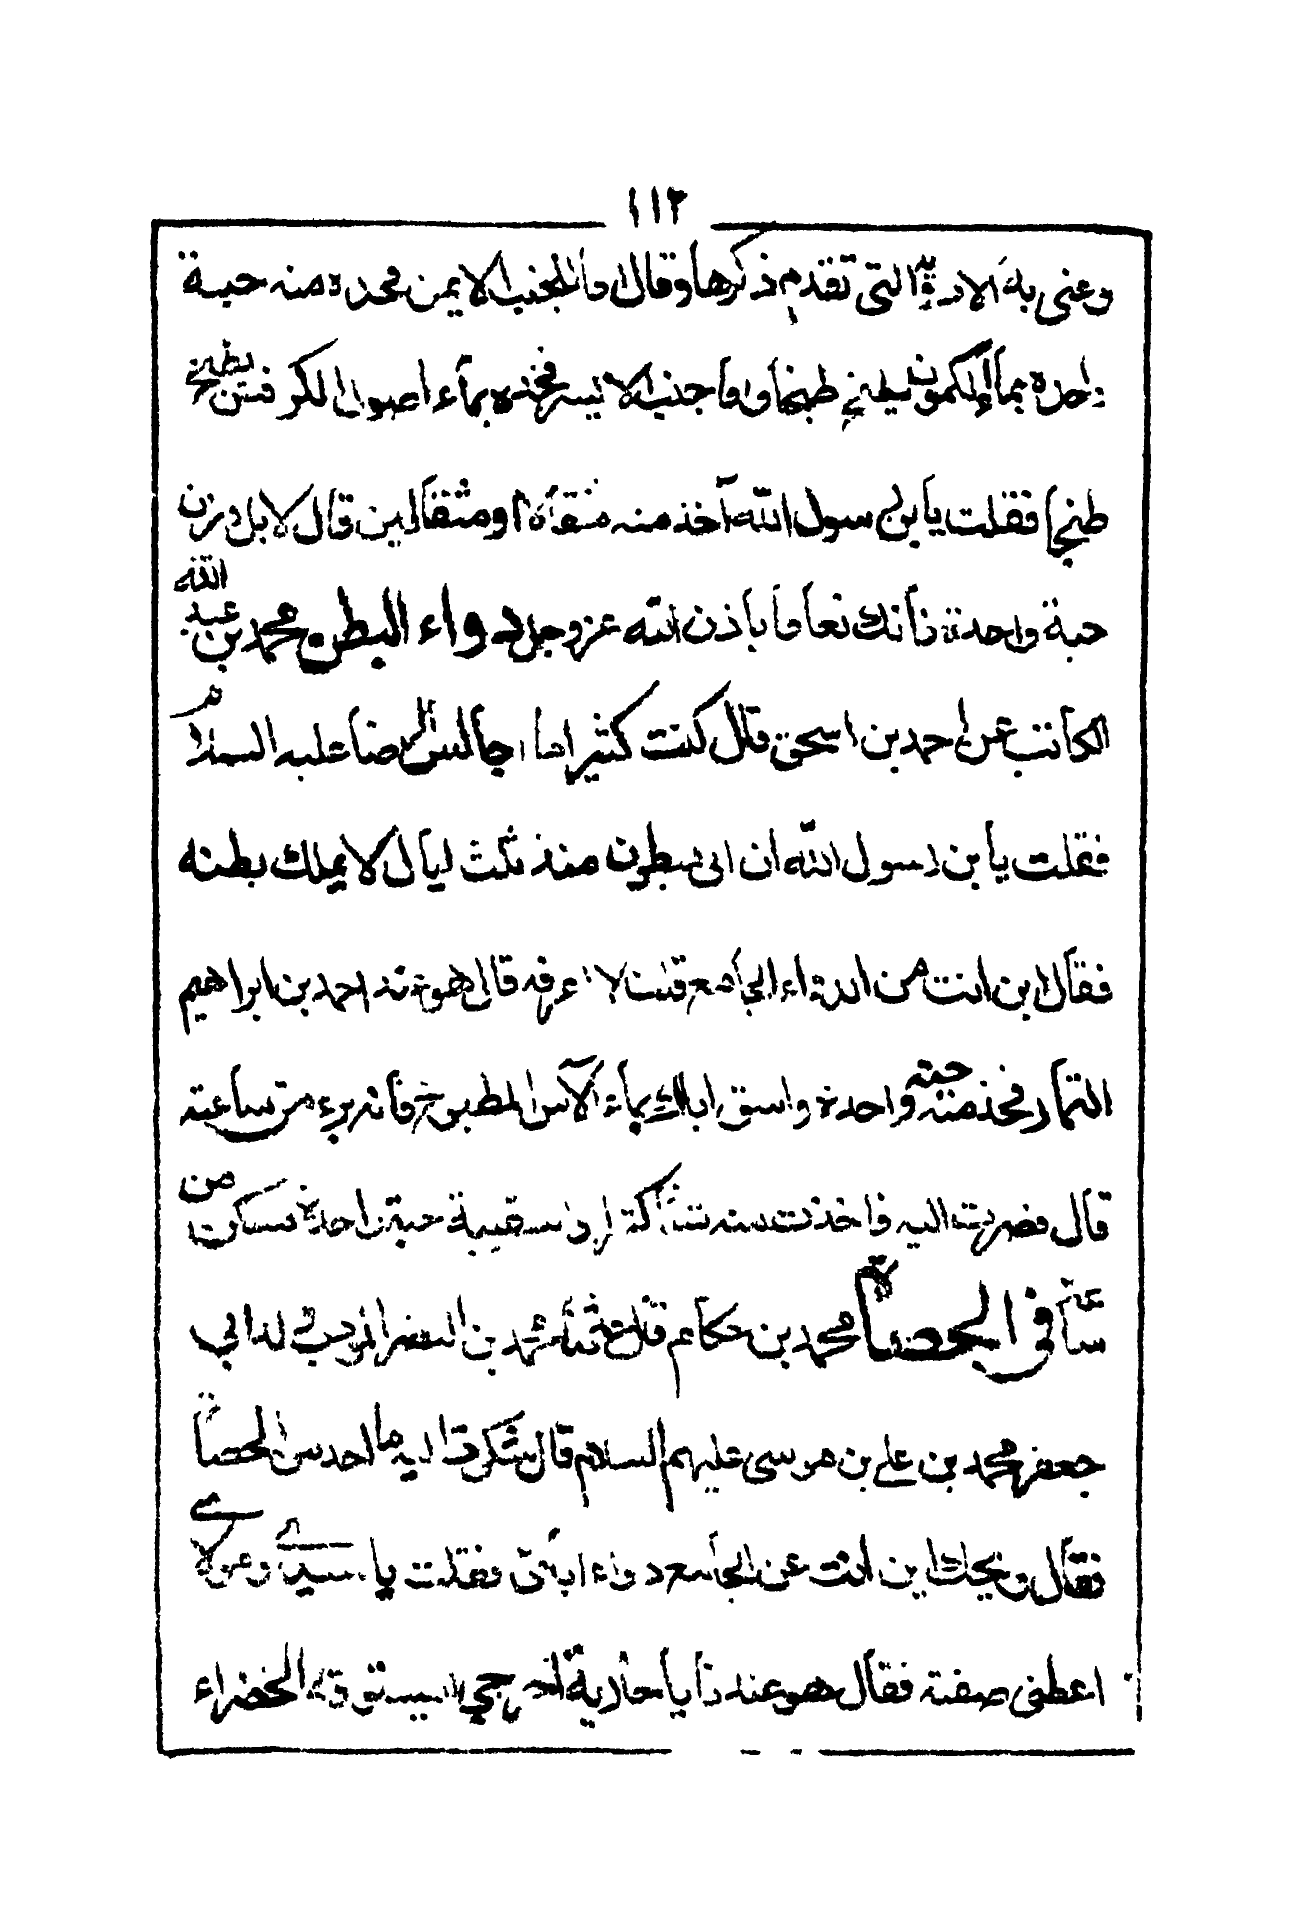 ١١٢
وعنى به الادوية التى تقدم ذكرها وقال اما لجنب الايمن فخذه منه حبة
واحدة بماء الكمون يطبخ طبخا واما جنب الايسر فخذه بماء اصول الكرفس يطبخ
طبخا فقلت يا بن رسول الله آخذ منه مثقالا او مثقالين قال لا بل وزن
حبة واحدة فانك تعافا باذن الله عز وجل دواء البطن محمد بن عبد الله
الكاتب عن احمد بن اسحق قال كنت كثيرا ما اجالس الرضا عليه السلام
فقلت يا بن رسول الله ان ابى مبطون منذ ثلث ليال لا يملك بطنه
فقال اين انت من الدواء الجامع قلت لا اعرفه قال هو عند احمد بن ابراهيم
التمار فخذ منه حبة واحدة واسق اباك بماء الآس المطبوخ فانه يبرء من ساعته
قال فصرت اليه فاخذت منه شيئا كثيرا وسقيته حبة واحدة فسكن من
ساعته في الحصاة محمد بن حكام قال حدثنا محمد بن النضر مؤدب ولد ابي
جعفر محمد بن علي بن موسى عليهم السلام قال شكوت اليه ما اجد من الحصاة
فقال ويحك اين انت عن الجامع دواء ابى فقلت يا سيدي ومولاي
اعطني صفته فقال هو عندنا يا جارية اخرجي البستوقة الخضراء